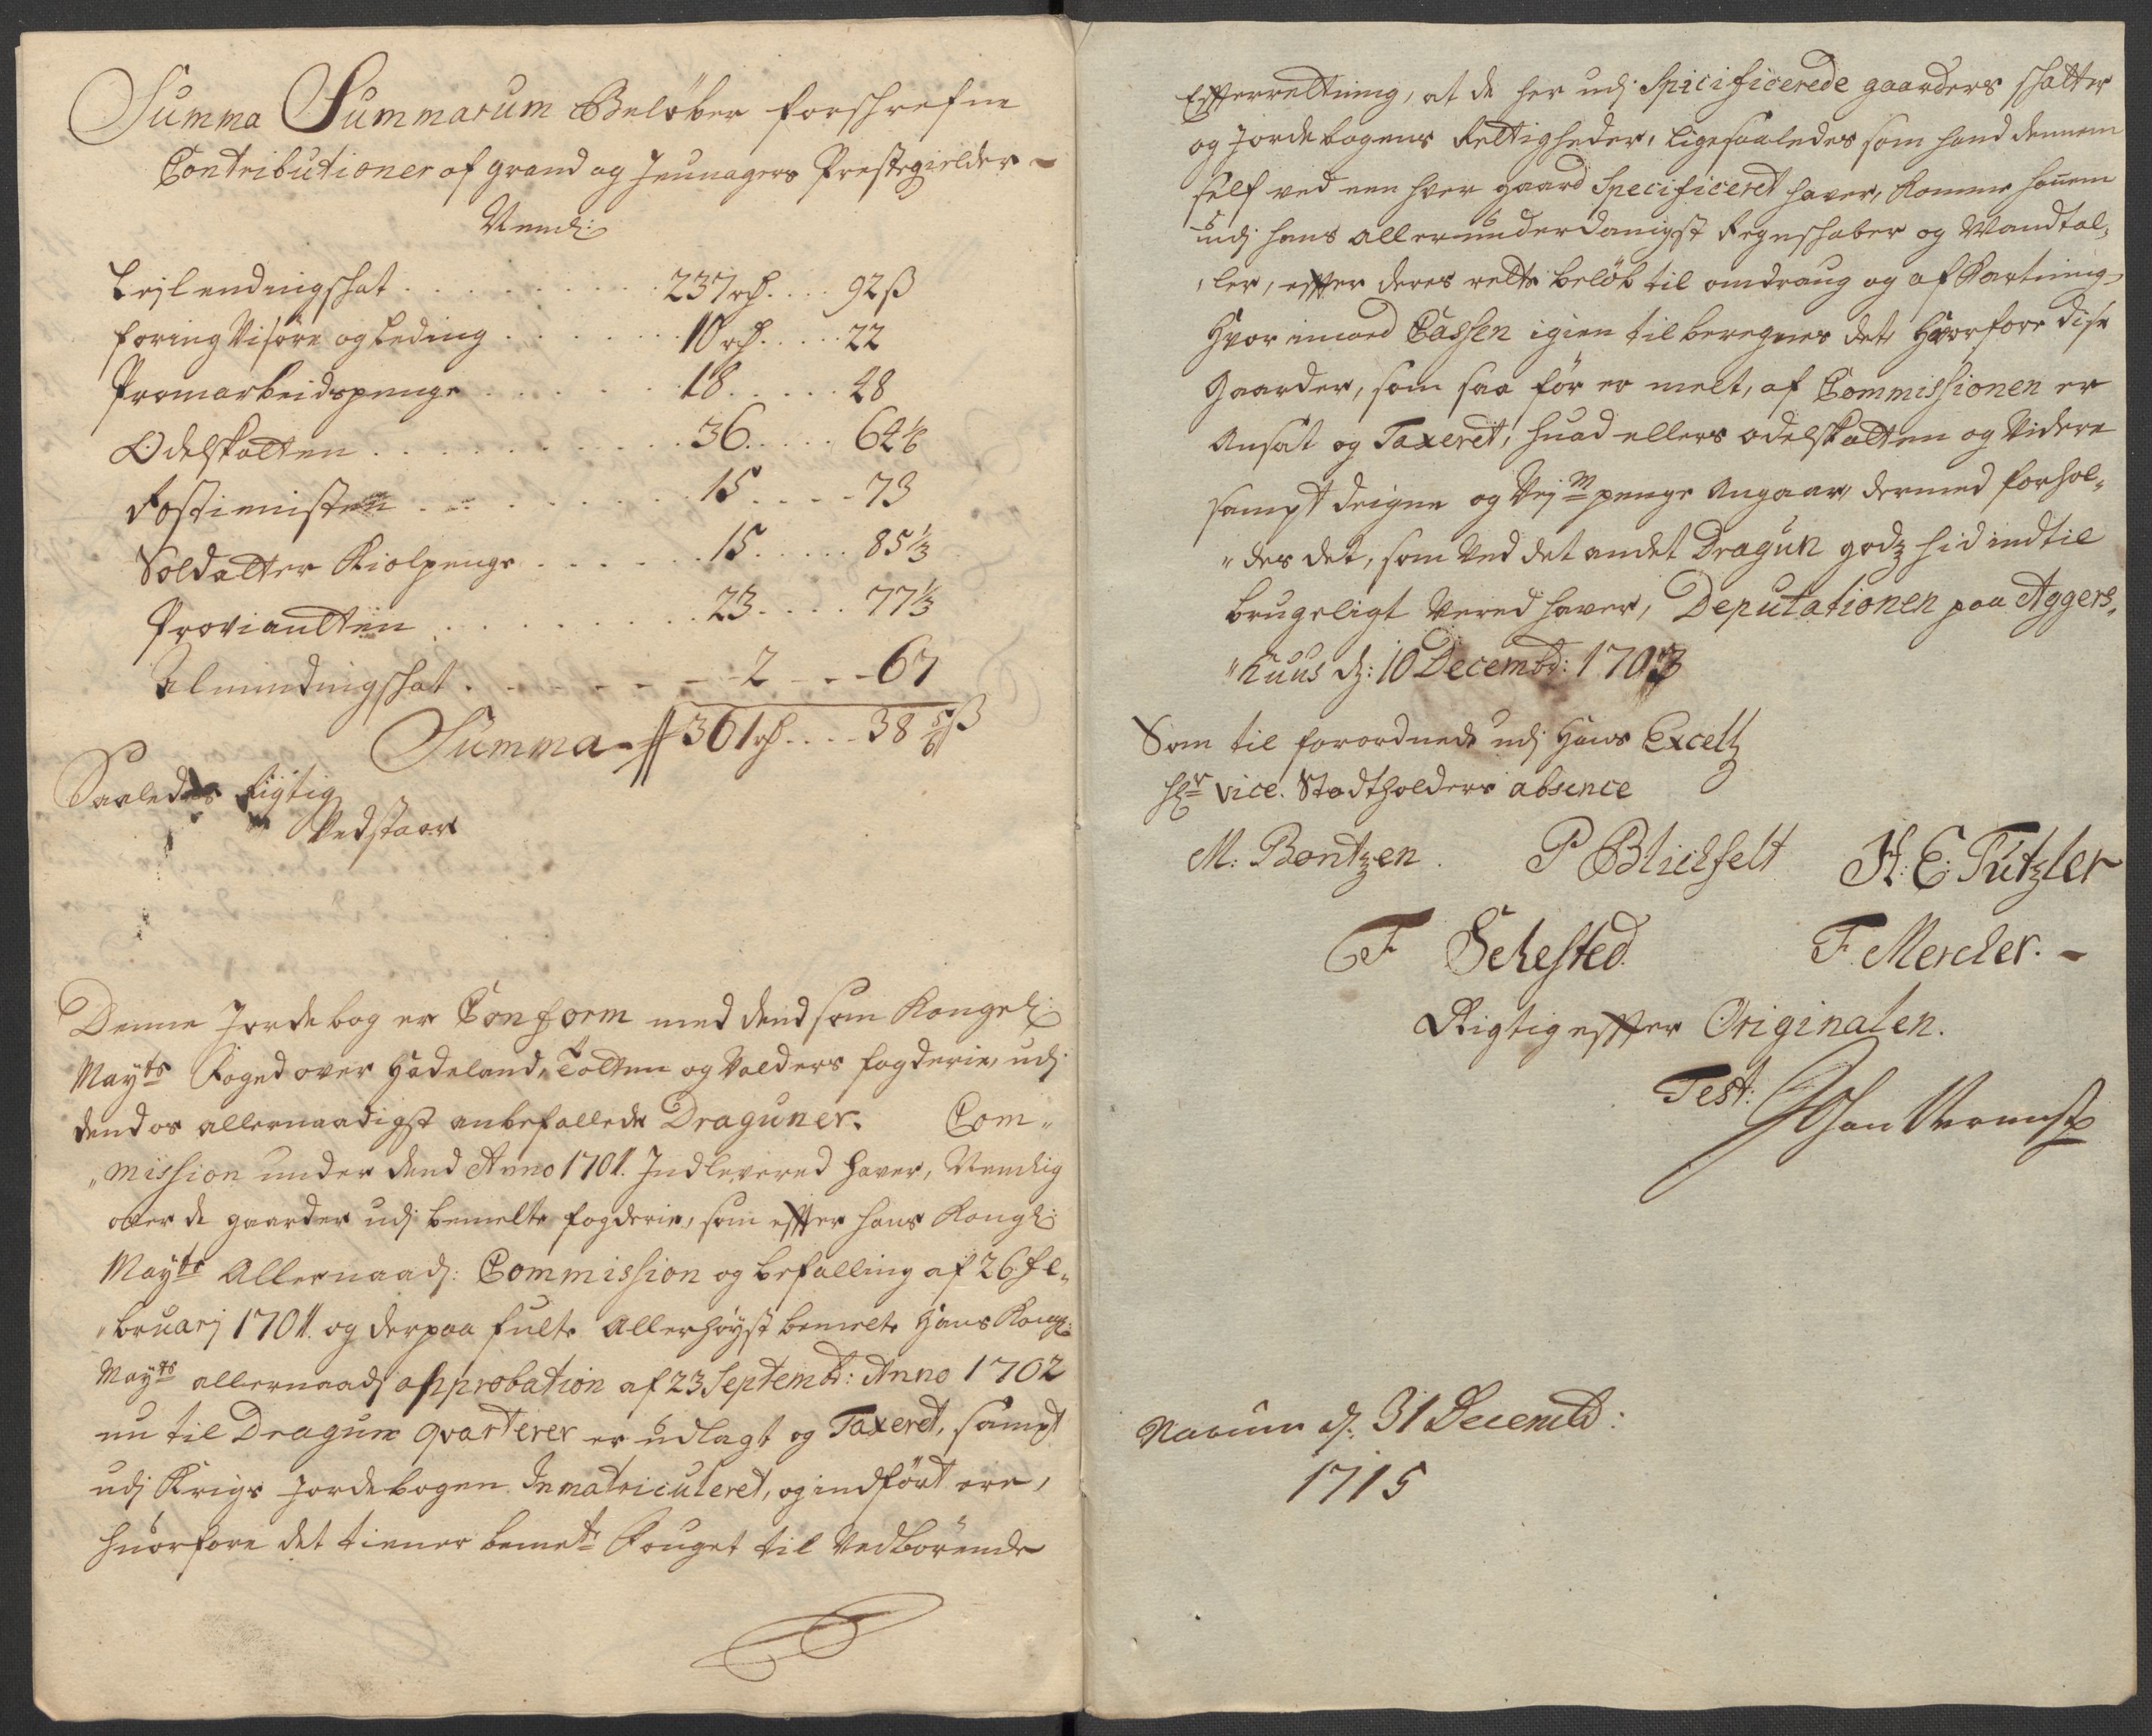 Summa Summarum Beløber forschrefne
Contributioner af grand og Jeunagers Prestegielder -
Neml:
Leylendingschat . . . . . . . 237 rd . . . 92 ß
foring Visøre og Leding . . . . . . 10 rd . . . . 22
Promarbeidspenge . . . . . 18 . . . . . 48
Odelskatten . . . . . . . . . 36 . . . . 64 1/6
Rostienisten . . . . . . . . 15 . . . . 73
Soldatter Kiolpenge . . . . . . 15 . . . . . 85 1/3
Proviantten . . . . . . . . 23 . . . . 77 1/3
Almindingschat . . . . . . - 2 - . - 67
Summa - 361 rd . . . . 38 5/6 ß
Saaledes Rigtig
Vedstaar
Denne Jordebog er Conform med dend som Kongel:
Mayts Foged over Hadeland, Totten og Valders fogderie, udj
dend os allernaadigst anbefallede Draguner. Com„
„mission under dend Anno 1701. Indlevered haver, Nemlig
over de gaarder udj bemelte fogderie, som effter hans Kongl:
Mayts Allernaad: Commission og befalling af 26 fe„
„bruarj 1701. og derpaa fulte Allerhøyst bemelte Hans Kongl:
Mayts allernaad approbation af 23 Septembr: Anno 1702
nu til Dragun qvarterer er udlagt og Taxeret, sampt
udj Krigs Jordebogen Inmatriculeret, og indført ere,
huorfore det tiener bemte Fouget til Vedbørende
Effterrettning, at de her udj Specificerede gaarders schatter
og Jordebogens Rettigheder, ligesaaledes som hand dennem
self ved een hver gaard Specificeret haver, komme hannem
udj hans allerunderdanigst Regnschaber og Mandtal„
„ler, effter deres rette beløb til omdraug og afkortning,
Hvor imod Cassen igien tilberegnes det, Hvorfore disse
Gaarder, som saa før er melt, af Commissionen er
Ansat og Taxeret, huad ellers odelskatten og Videre
sampt deigne og Vej m penge Angaar, dermed forhol„
„des det, som Ved det andet Dragun godz hid indtil
brugeligt Vered haver, Deputationen paa Aggers„
„huus d: 10 Decembr: 1703
Som til forordnede udj Hans Excellz
Hr Vice. Stadtholders absence
M: Bentzen. P Blichfelt H. C. Tutzler
F Sehested. F. Mercker. -
Rigtig effter Originalen.
Test:
Naarum d. 31 Decembr:
1715